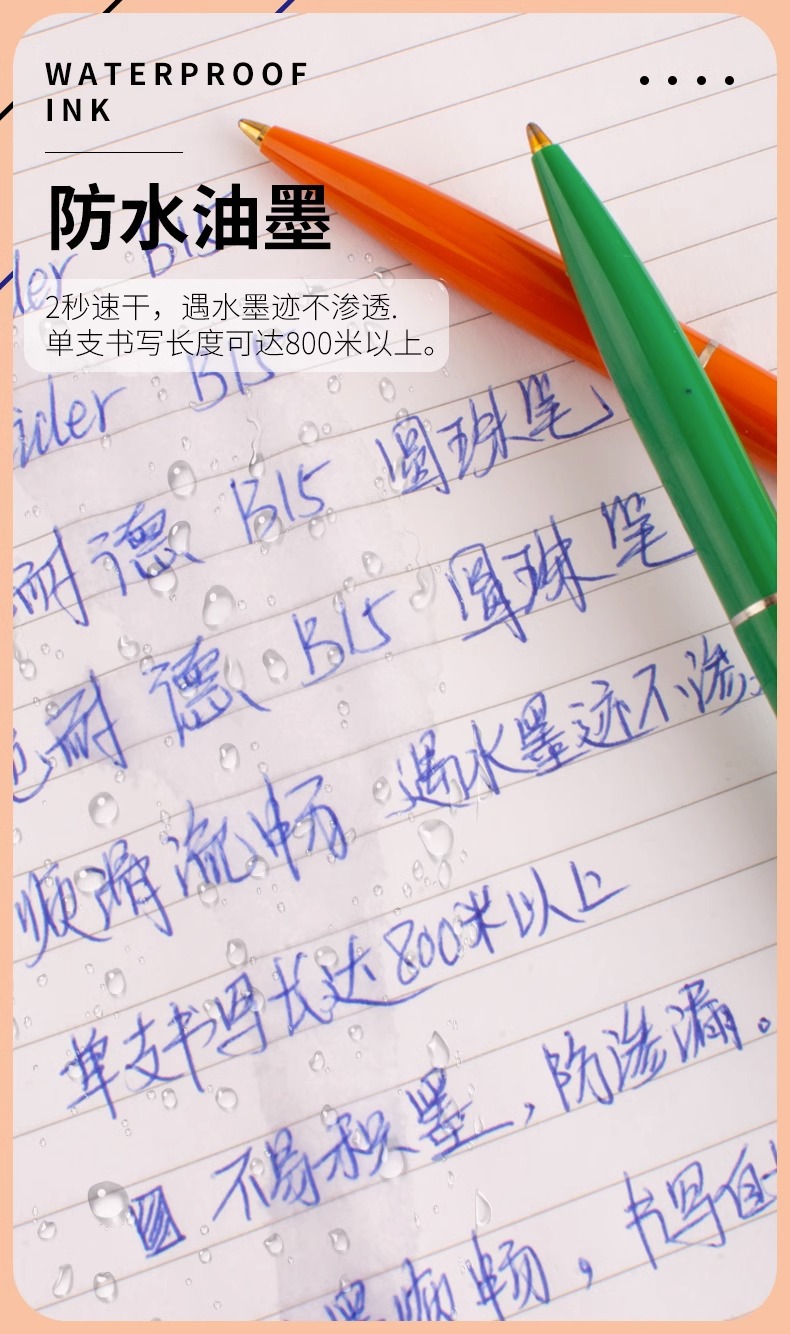 WATERPROOF
INK
防水油墨
2秒速干，遇水墨迹不渗透.
单支书写长度可达800米以上。
der B15
ider B15
圆珠笔
耐德 B15 圆珠笔
耐德 B15
顺滑流畅 遇水墨迹不渗
单支书写长达800米以上
不易积墨，防渗漏。
墨顺畅，书写自